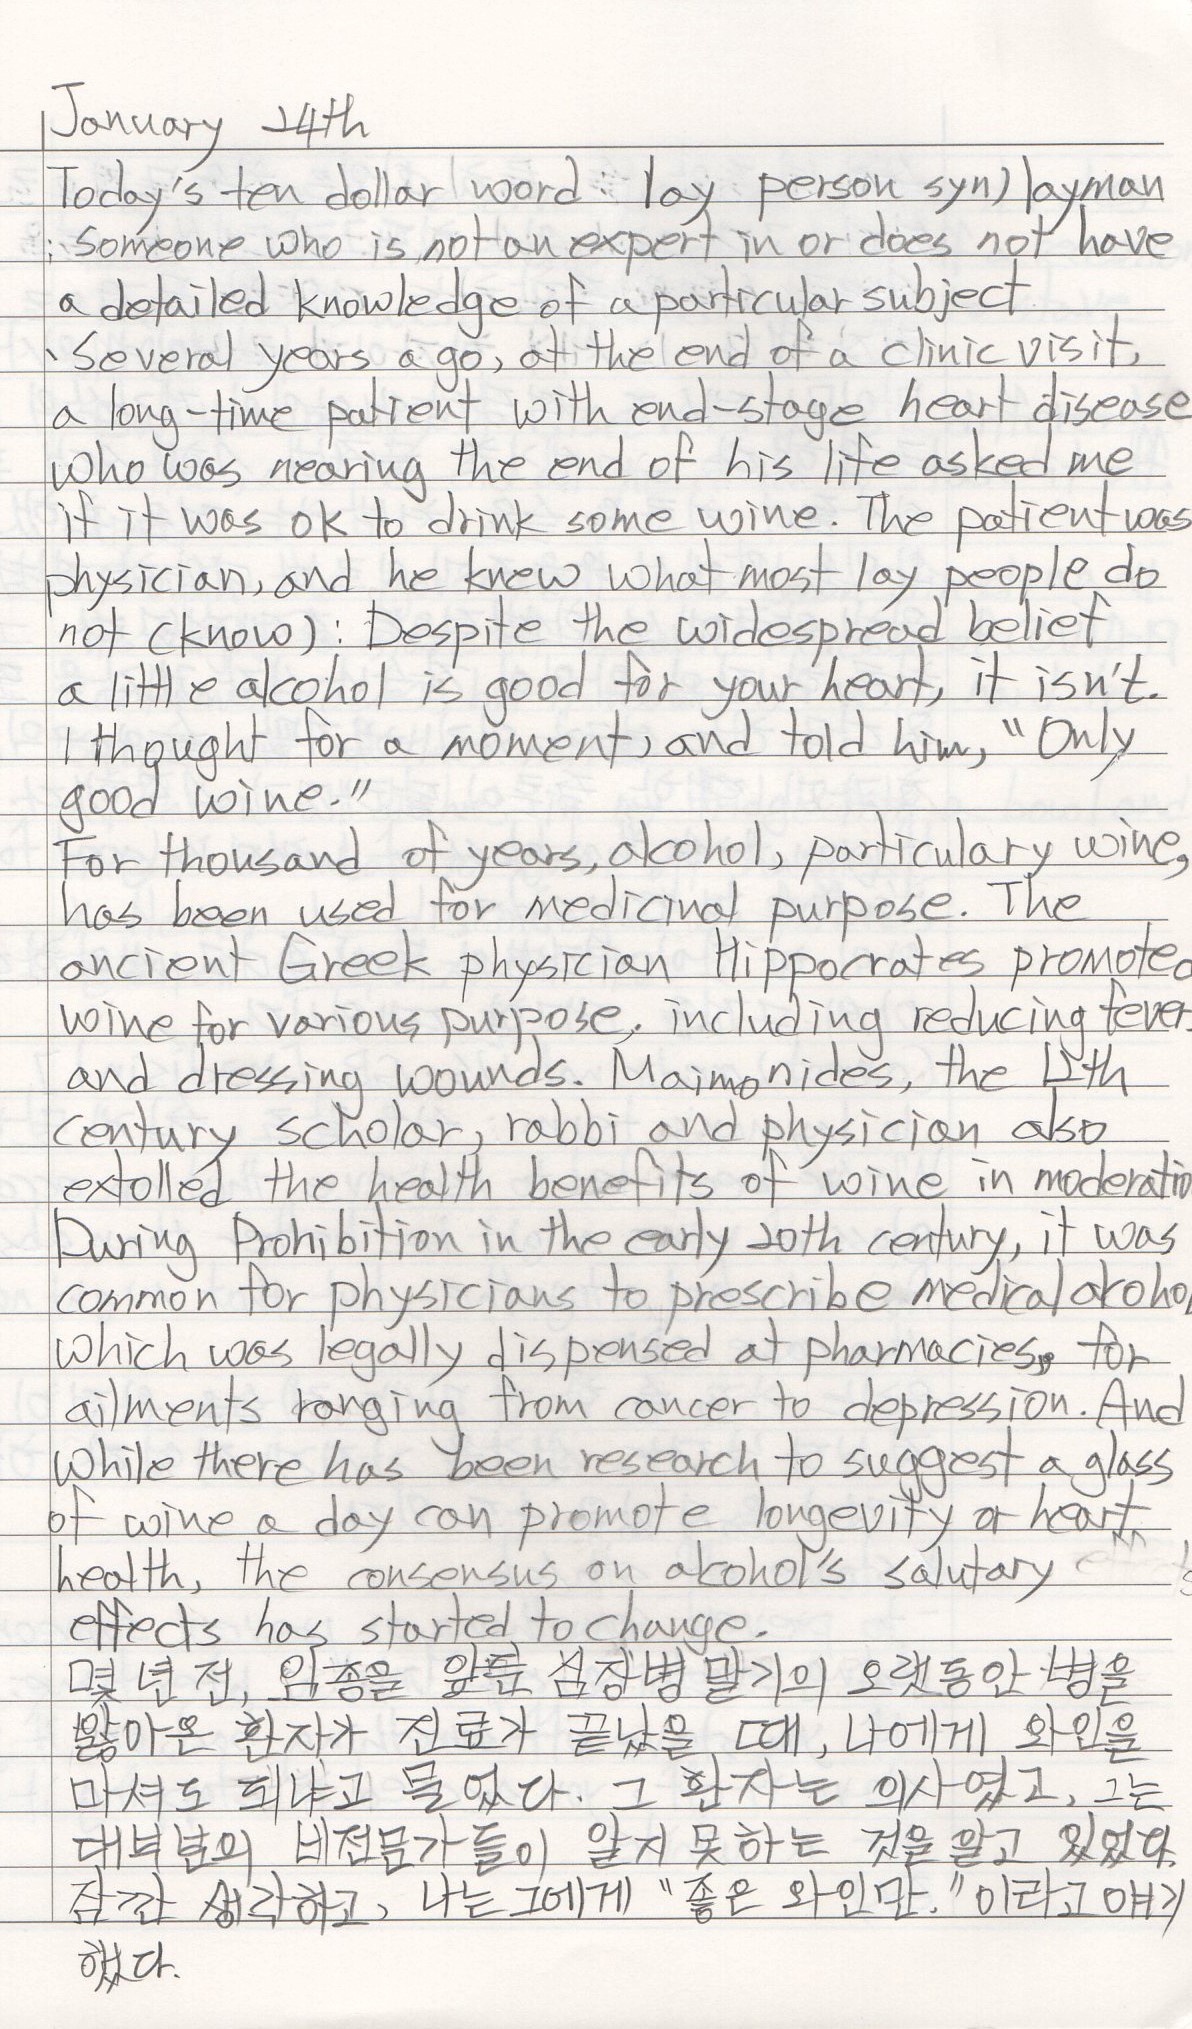 January 24th
Today's ten dollar word : lay person syn) layman
: Someone who is not an expert in or does not have
a detailed knowledge of a particular subject
Several years ago, at the end of a clinic visit,
a long-time patient with end-stage heart disease
who was nearing the end of his life asked me
if it was ok to drink some wine. The patient was
physician, and he knew what most lay people do
not (know) : Despite the widespread belief
a little alcohol is good for your heart, it isn't.
I thought for a moment, and told him, "Only
good wine."
For thousand of years, alcohol, particulary wine,
has been used for medicinal purpose. The
ancient Greek physician Hippocrates promoted
wine for various purpose, including reducing fever
and dressing wounds. Maimonides, the 12th
century scholar, rabbi and physician also
extolled the health benefits of wine in moderatio
During Prohibition in the early 20th century, it was
common for physicians to prescribe medical alcohol
which was legally dispensed at pharmacies, for
ailments ranging from cancer to depression. And
while there has been research to suggest a glass
of wine a day can promote longevity or heart
health, the consensus on alcohol's salutary
effects has started to change.
몇 년 전, 임종을 앞둔 심장병 말기의 오랫동안 병을
앓아온 환자가 진료가 끝났을 때, 나에게 와인을
마셔도 되냐고 물었다. 그 환자는 의사였고, 그는
대부분의 비전문가들이 알지 못하는 것을 알고 있었다.
잠깐 생각하고, 나는 그에게 "좋은 와인만." 이라고 얘기
했다.